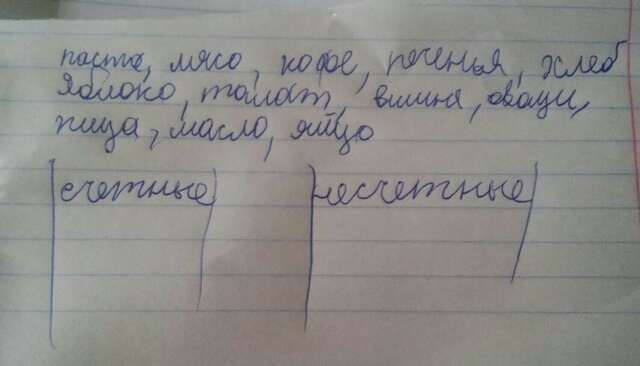 паста, мясо, кофе, печенья, хлеб
яблоко, томат, вишня, овощи,
пица, масло, яйцо
счетные несчетные